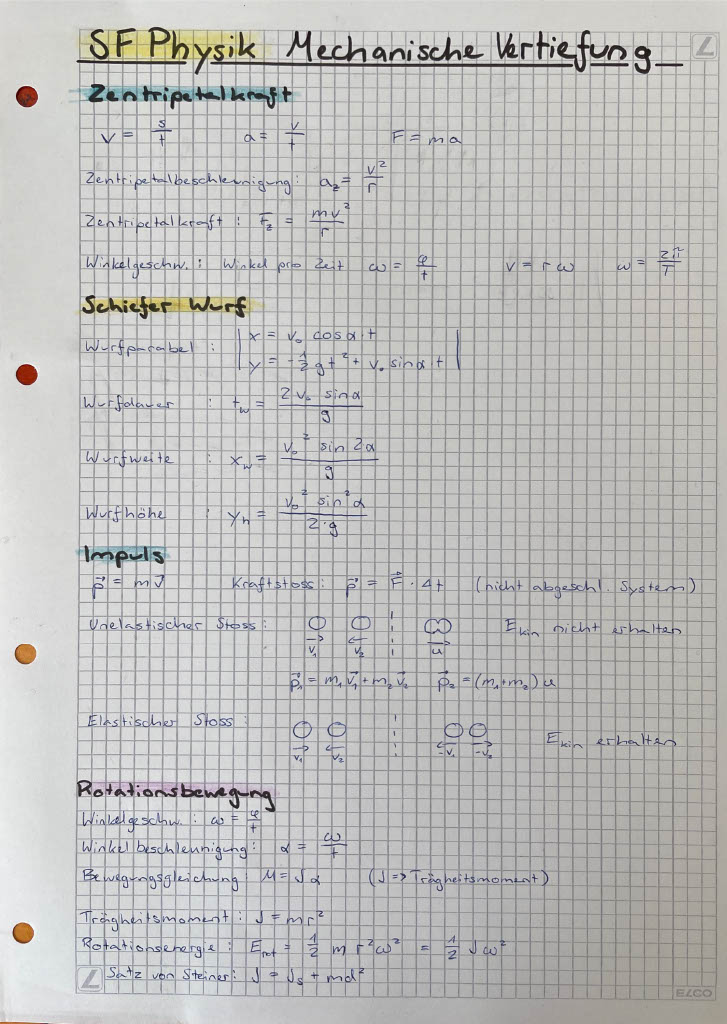 SF Physik Mechanische Vertiefung
Zentripetalkraft
v = s/t    a = v/t    F = ma
Zentripetalbeschleunigung: a_z = v²/r
Zentripetalkraft : F_z = mv²/r
Winkelgeschw. : Winkel pro Zeit ω = φ/t    v = rω    ω = 2π/T
Schiefer Wurf
Wurfparabel : | x = v₀ cosα·t |
| y = -1/2 gt² + v₀ sinα·t |
Wurfdauer : t_w = 2v₀ sinα/g
Wurfweite : x_w = v₀² sin2α/g
Wurfhöhe : y_h = v₀² sin²α/2·g
Impuls
p⃗ = mv⃗    Kraftstoss: p⃗ = F⃗ · Δt (nicht abgeschl. System)
Unelastischer Stoss : E_kin nicht erhalten
v₁ v₂ u
p⃗₁ = m₁v⃗₁ + m₂v⃗₂    p⃗₂ = (m₁+m₂)u
Elastischer Stoss : E_kin erhalten
v₁ v₂ -v₁ -v₂
Rotationsbewegung
Winkelgeschw. : ω = φ/t
Winkelbeschleunigung: α = ω/t
Bewegungsgleichung: M = Jα (J => Trägheitsmoment)
Trägheitsmoment : J = mr²
Rotationsenergie : E_rot = 1/2 m r²ω² = 1/2 Jω²
Satz von Steiner: J = J_s + md²
ELCO